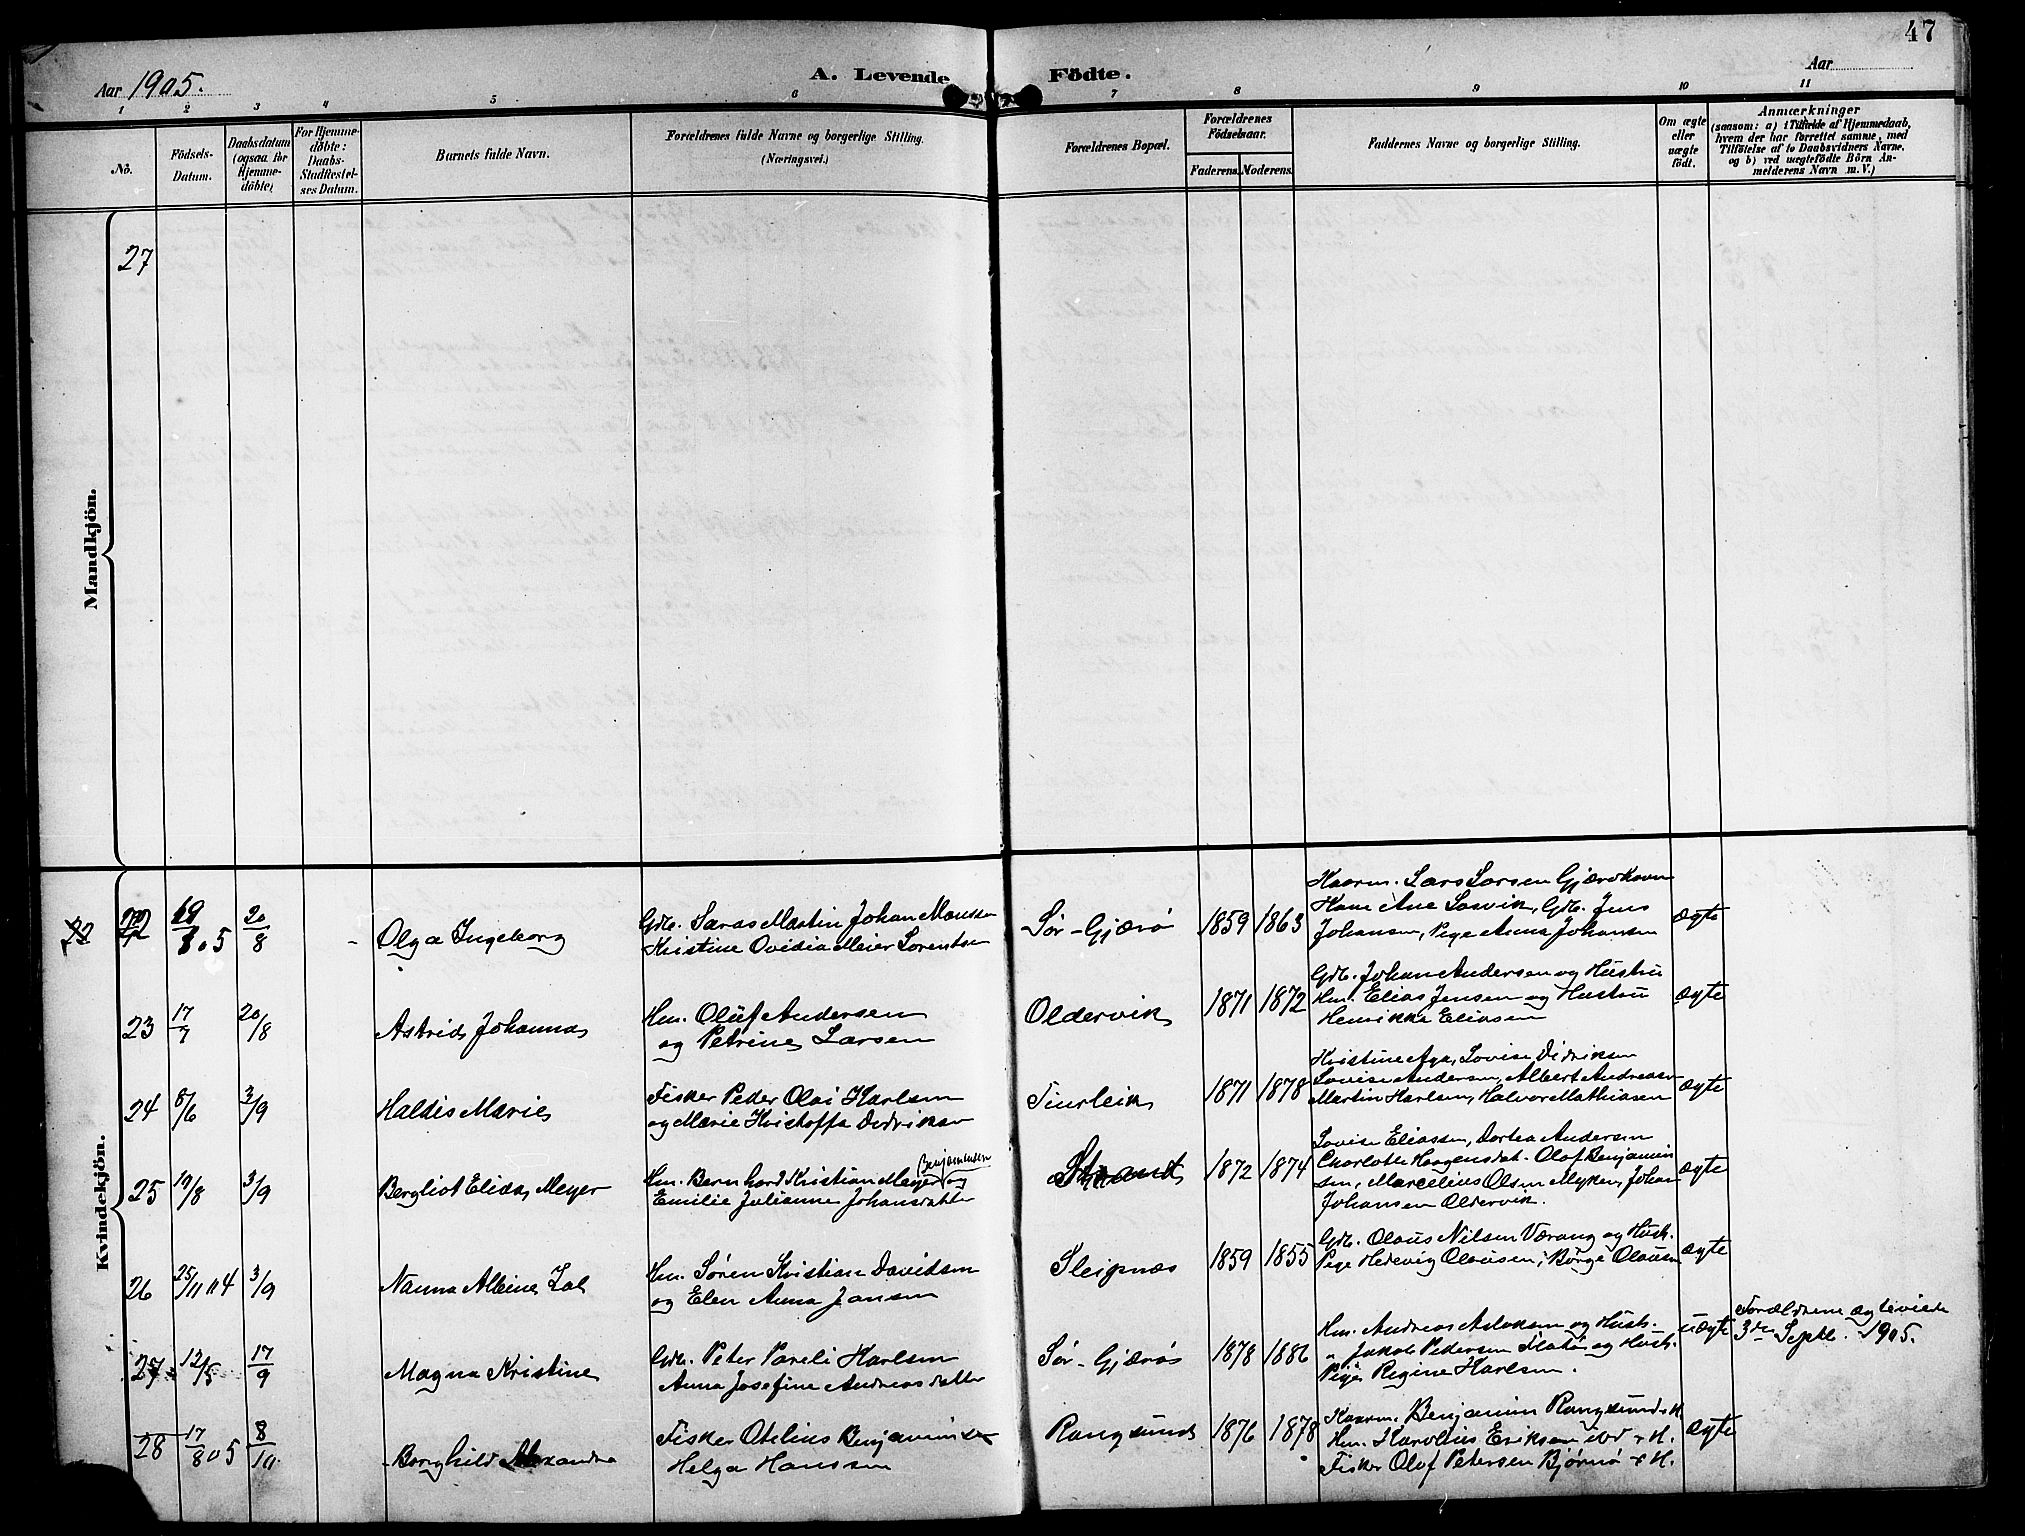 47
Aar 1905.
A. Levende Födte.
Aar
1 2 3 4 5 6 7 8 9 10 11
Nö.
Födsels-Datum.
Daabsdatum (ogsaa for Hjemme-döbte)
For Hjemme-döbte: Daabs-Stadfæstel-ses Datum.
Barnets fulde Navn.
Forældrenes fulde Navne og borgerlige Stilling.
(Næringsvei.)
Forældrenes Bopæl.
Forældrenes Födselsaar.
Faderens. Moderens.
Faddernes Navne og borgerlige Stilling.
Om ægte eller uægte födt.
Anmærkninger
(saasom: a) i Tilfælde af Hjemmedaab,
hvem der har forrettet samme, med
Tilföielse af to Daabsvidners Navne,
og b) ved uægtefödte Börn An-
melderens Navn m. V.)
Mandkjön.
27
Kvindekjön.
22 20/8 Olga Ingeborg
Gdb. Lars Martin Johan Monssen
Kristine Ovidia Meier Lorentsen
Sør-Gjærø 1859 1863
Kaarm. Lars Larsen Gjærdhavn
Kone Ane Sorvik, Gdb. Jens
Johansen, Pige Anna Johansen
ægte
23 17/7 20/8 Astrid Johanna
Hm. Oluf Andersen
og Petrine Larsen
Oldervik 1871 1872
Gdb. Johan Andersen og Hustru
Hm. Elias Jensen og Hustru
Henrikke Eliasen
ægte
24 8/6 3/9 Haldis Marie
Fisker Peder Olai Karlsen
og Marie Kristoffa Didriksen
1871 1878
Kristine Aga, Lovise Didriksen
Lovise Andersen, Albert Andreasen
Martin Karlsen, Halvor Mathiasen
ægte
25 19/8 3/9 Bergliot Elida Meyer
Benjaminsen
Hm. Bernhard Kristian Meyer og
Emilie Julianne Johansdatter
Strand 1872 1874
Lovise Eliassen, Dortea Andersen
Charlotte Haagensdat. Olaf Benjamin
sen, Marcelius Olsen Myken, Johan
Johansen Oldervik.
ægte
26 25/11 04 3/9 Nanna Albine
Hm. Søren Kristian Davidsen
og Elen Anna Jansen
Sleipnæs 1859 1855
Gdb. Olaus Nilsen Værang og Hust.
Pige Hedevig Olausen, Børge Olausen
ægte
27 12/5 17/9 Magna Kristine
Gdb. Peter Pareli Karlsen
Anna Josefine Andreasdatter
Sør-Gjærø 1878 1886
Hm. Andreas Aslaksen og Hust.
" Jakob Pedersen Flatø og Hust.
Pige Regine Karlsen.
uægte
Forældrene ægteviede
3die Septb. 1905.
28 17/8 05 8/10 Borghild Alexandra
Fisker Otelius Benjaminsen
Helga Hanssen
Rangsund 1876 1878
Kaarm. Benjamin Rangsund & H.
Hm. Karolius Eriksen ibd & H.
Fisker Olof Petersen Bjørnø & H.
ægte